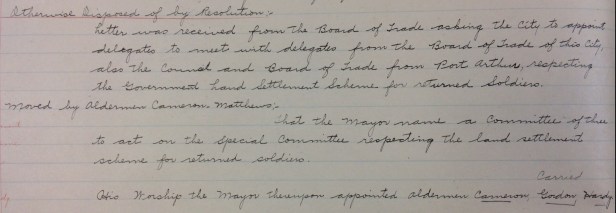 Otherwise Disposed of by Resolution:-
Letter was received from the Board of Trade asking the City to appoint
delegates to meet with delegates from the Board of Trade of this City,
also the Council and Board of Trade from Port Arthur, respecting
the Government Land Settlement Scheme for returned Soldiers.
Moved by Aldermen Cameron. Matthews:-
That the Mayor name a Committee of three
to act on the Special Committee respecting the land settlement
scheme for returned soldiers.
Carried
His Worship the Mayor thereupon appointed Aldermen Cameron, Gordon, Hardy